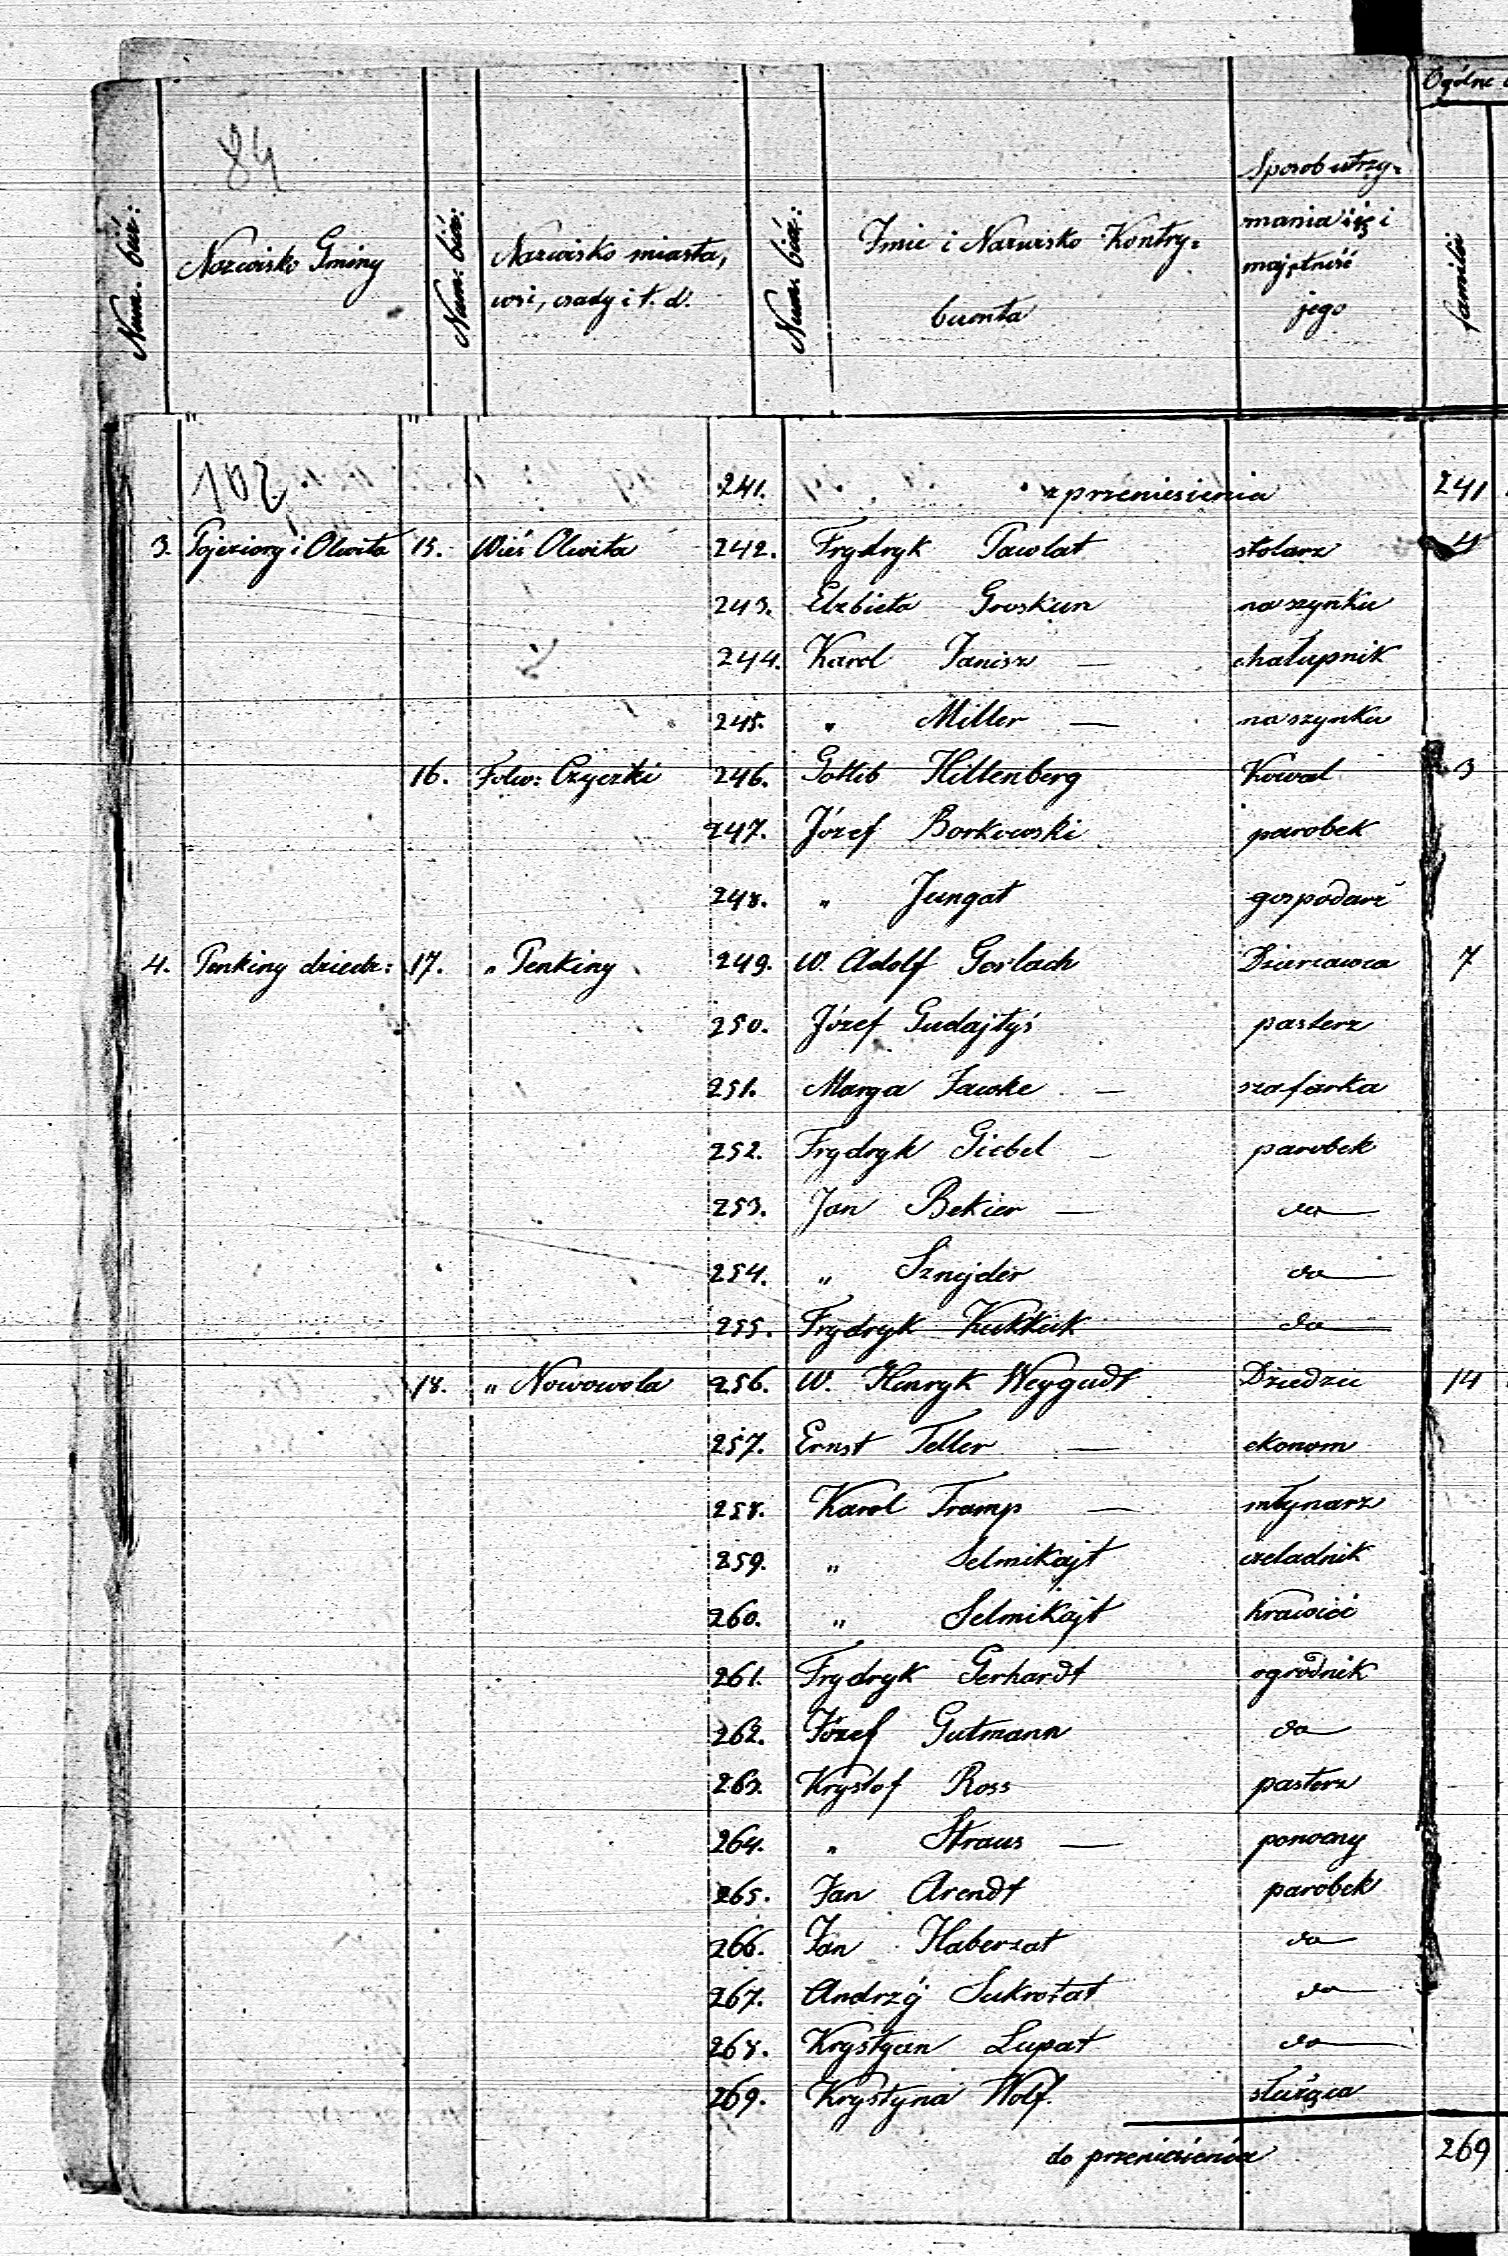 Ogólne
84
Num. bież:
Nazwisko Gminy
Num. bież:
Nazwisko miasta,
wsi, osady i t. d.
Num. bież:
Imie i Nazwisko Kontry=
buenta
Sposob utrzy=
mania się i
majętność
jego
familii
102
241. z przeniesienia 241
3. Pojeziory i Olwita 15. Wieś Olwita 242. Frydryk Pawlat stolarz 4
243. Elzbieta Groskun na szynku
244. Karol Janisz — chałupnik
245. " Miller — na szynku
16. Folw: Czyczki 246. Gotlib Hillenberg Kowal 3
247. Józef Borkowski parobek
248. " Jungat gospodarz
4. Penkiny dziedz: 17. " Penkiny 249. W. Adolf Gerlach Dzierzawca 7
250. Józef Gudajtys pasterz
251. Marya Jawske — szafarka
252. Frydryk Giebel — parobek
253. Jan Bekier — do —
254. " Sznejder do —
255. Frydryk Kukkuk do —
18. " Nowowola 256. W. Henryk Weygudt Dziedzic 14
257. Ernst Teller — ekonom
258. Karol Tramp — młynarz
259. " Selmikajt czeladnik
260. " Selmikajt krawiec
261. Frydryk Gerhardt ogrodnik
262. Józef Gutmann do —
263. Krystof Ross pasterz
264. " Straus — pomocny
265. Jan Arendt parobek
266. Jan Haberzat do —
267. Andrzej Sukrotat do —
268. Krystyan Lupat do —
269. Krystyna Wolf. służąca
do przeniesienia 269